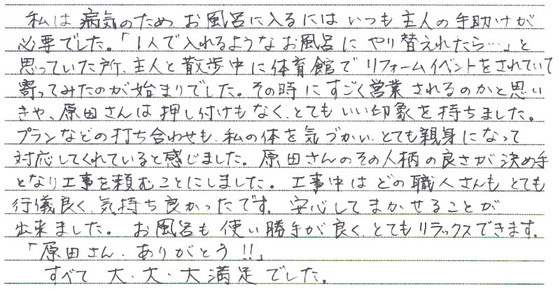 私は病気のためお風呂に入るにはいつも主人の手助けが
必要でした。「1人で入れるようなお風呂にやり替えれたら…」と
思っていた所、主人と散歩中に体育館でリフォームイベントをされていて
寄ってみたのが始まりでした。その時にすごく営業されるのかと思い
きや、原田さんは押し付けもなく、とてもいい印象を持ちました。
プランなどの打ち合わせも、私の体を気づかい、とても親身になって
対応してくれていると感じました。原田さんのその人柄の良さが決め手
となり工事を頼むことにしました。工事中はどの職人さんもとても
行儀良く気持ち良かったです。安心してまかせることが
出来ました。お風呂も使い勝手が良くとてもリラックスできます。
「原田さん、ありがとう!!」
すべて大・大・大満足でした。